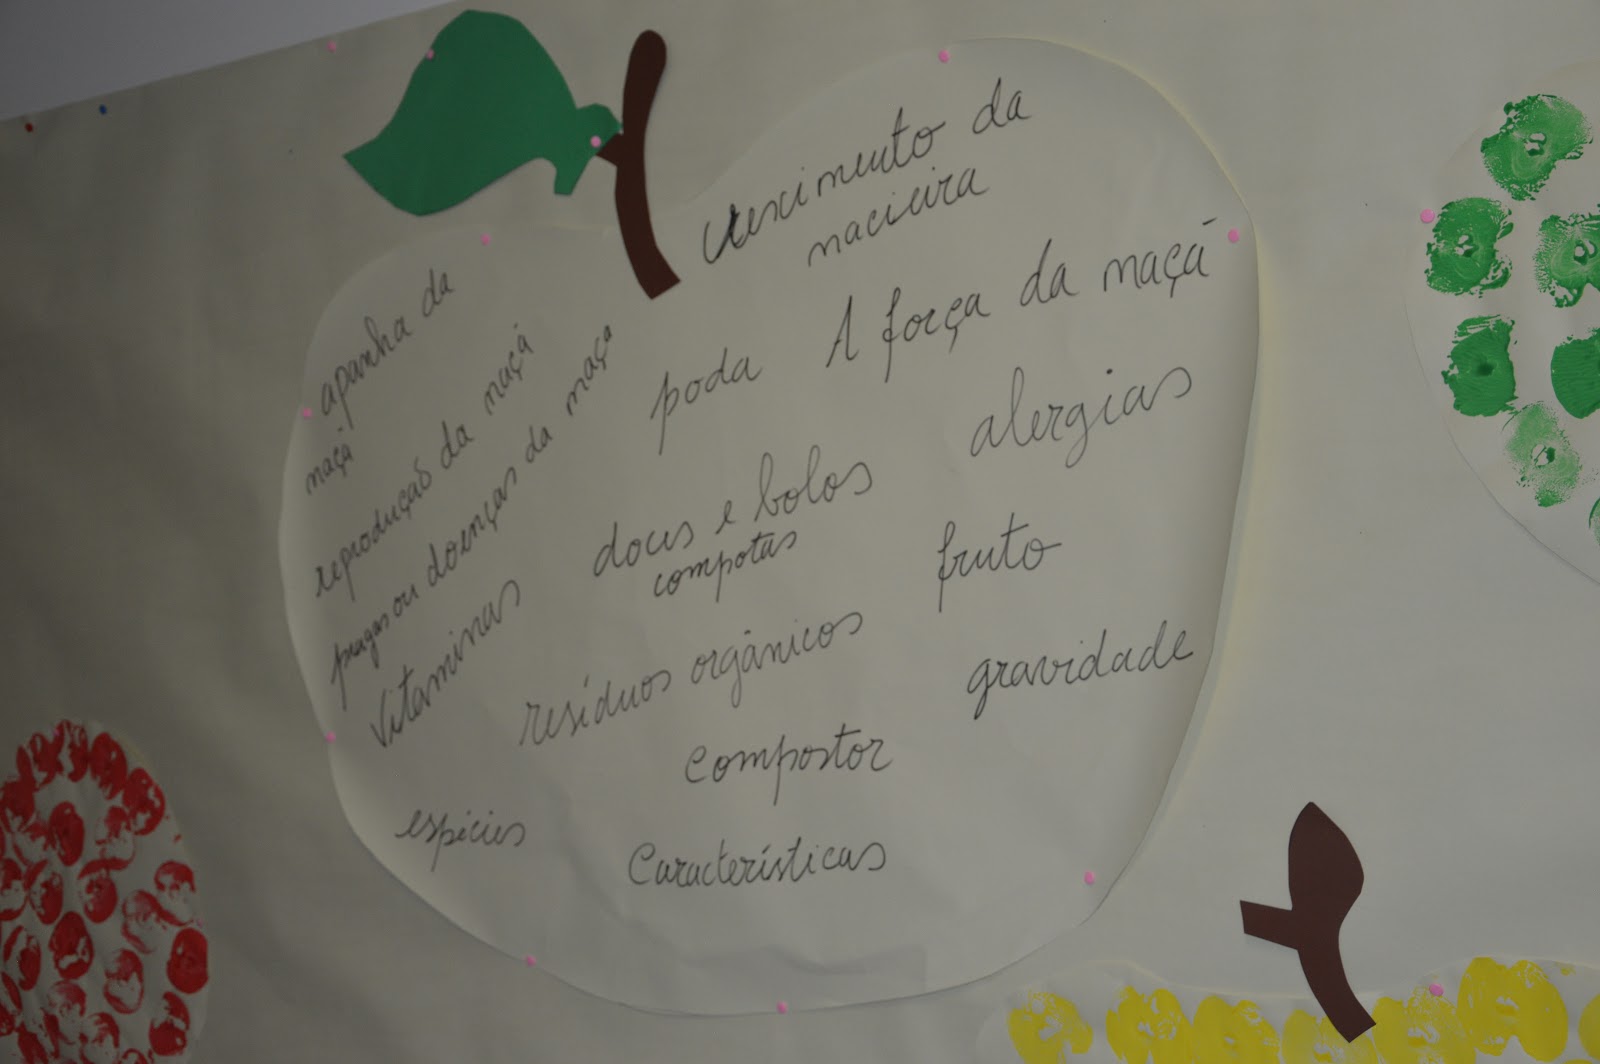 crescimento da
macieira
apanha da
maçã
reprodução da maçã
pragas ou doenças da maça
vitaminas
poda
A força da maçã
doces e bolos
compotas
alergias
fruto
resíduos orgânicos
gravidade
compostor
espécies
Características